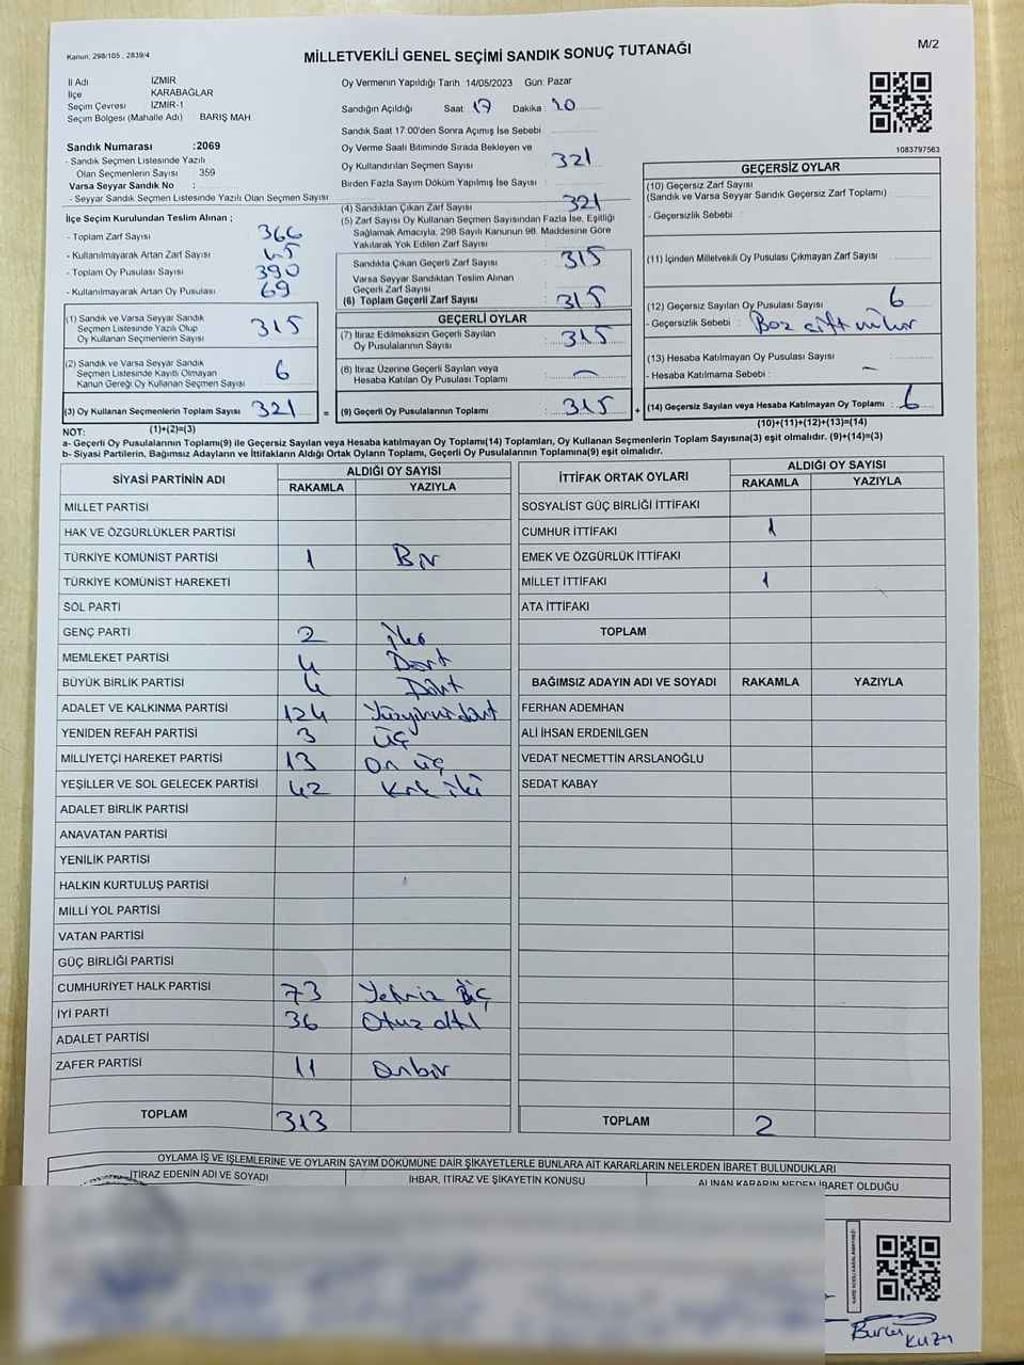 Kanun, 298/105 , 2839/4
MİLLETVEKİLİ GENEL SEÇİMİ SANDIK SONUÇ TUTANAĞI
M/2
İl Adı İZMİR
İlçe KARABAĞLAR
Seçim Çevresi İZMİR-1
Seçim Bölgesi (Mahalle Adı) BARIŞ MAH
Sandık Numarası :2069
- Sandık Seçmen Listesinde Yazılı
Olan Seçmenlerin Sayısı 359
Varsa Seyyar Sandık No :
- Seyyar Sandık Seçmen Listesinde Yazılı Olan Seçmen Sayısı
İlçe Seçim Kurulundan Teslim Alınan ;
- Toplam Zarf Sayısı 366
- Kullanılmayarak Artan Zarf Sayısı 45
- Toplam Oy Pusulası Sayısı 390
- Kullanılmayarak Artan Oy Pusulası 69
(1) Sandık ve Varsa Seyyar Sandık
Seçmen Listesinde Yazılı Olup
Oy Kullanan Seçmenlerin Sayısı 315
(2) Sandık ve Varsa Seyyar Sandık
Seçmen Listesinde Kayıtlı Olmayan
Kanun Gereği Oy Kullanan Seçmen Sayısı 6
(3) Oy Kullanan Seçmenlerin Toplam Sayısı 321 =
Oy Vermenin Yapıldığı Tarih 14/05/2023 Gün: Pazar
Sandığın Açıldığı Saat 17 Dakika : 20
Sandık Saat 17:00'den Sonra Açımış İse Sebebi
Oy Verme Saati Bitiminde Sırada Bekleyen ve
Oy Kullandırılan Seçmen Sayısı 321
Birden Fazla Sayım Döküm Yapılmış İse Sayısı :
(4) Sandıktan Çıkan Zarf Sayısı 321
(5) Zarf Sayısı Oy Kullanan Seçmen Sayısından Fazla İse, Eşitliği
Sağlamak Amacıyla, 298 Sayılı Kanunun 98. Maddesine Göre
Yakılarak Yok Edilen Zarf Sayısı :
Sandıkta Çıkan Geçerli Zarf Sayısı 315
Varsa Seyyar Sandıktan Teslim Alınan
Geçerli Zarf Sayısı
(6) Toplam Geçerli Zarf Sayısı : 315
GEÇERLİ OYLAR
(7) İtiraz Edilmeksizin Geçerli Sayılan
Oy Pusulalarının Sayısı : 315
(8) İtiraz Üzerine Geçerli Sayılan veya
Hesaba Katılan Oy Pusulası Toplamı : —
(9) Geçerli Oy Pusulalarının Toplamı : 315 +
1083797563
GEÇERSİZ OYLAR
(10) Geçersiz Zarf Sayısı
(Sandık ve Varsa Seyyar Sandık Geçersiz Zarf Toplamı)
- Geçersizlik Sebebi :
(11) İçinden Milletvekili Oy Pusulası Çıkmayan Zarf Sayısı
(12) Geçersiz Sayılan Oy Pusulası Sayısı 6
- Geçersizlik Sebebi :
(13) Hesaba Katılmayan Oy Pusulası Sayısı :
- Hesaba Katılmama Sebebi : —
(14) Geçersiz Sayılan veya Hesaba Katılmayan Oy Toplamı : 6
(10)+(11)+(12)+(13)=(14)
NOT: (1)+(2)=(3)
a- Geçerli Oy Pusulalarının Toplamı(9) ile Geçersiz Sayılan veya Hesaba katılmayan Oy Toplamı(14) Toplamları, Oy Kullanan Seçmenlerin Toplam Sayısına(3) eşit olmalıdır. (9)+(14)=(3)
b- Siyasi Partilerin, Bağımsız Adayların ve İttifakların Aldığı Ortak Oyların Toplamı, Geçerli Oy Pusulalarının Toplamına(9) eşit olmalıdır.
SİYASİ PARTİNİN ADI ALDIĞI OY SAYISI
RAKAMLA YAZIYLA
MİLLET PARTİSİ
HAK VE ÖZGÜRLÜKLER PARTİSİ
TÜRKİYE KOMÜNİST PARTİSİ 1 Bir
TÜRKİYE KOMÜNİST HAREKETİ
SOL PARTİ
GENÇ PARTİ 2 iki
MEMLEKET PARTİSİ 4 Dört
BÜYÜK BİRLİK PARTİSİ 4 Dört
ADALET VE KALKINMA PARTİSİ 124 Yüzyirmidört
YENİDEN REFAH PARTİSİ 3 üç
MİLLİYETÇİ HAREKET PARTİSİ 13 On üç
YEŞİLLER VE SOL GELECEK PARTİSİ 42 Kırk iki
ADALET BİRLİK PARTİSİ
ANAVATAN PARTİSİ
YENİLİK PARTİSİ
HALKIN KURTULUŞ PARTİSİ
MİLLİ YOL PARTİSİ
VATAN PARTİSİ
GÜÇ BİRLİĞİ PARTİSİ
CUMHURİYET HALK PARTİSİ 73 Yetmiş üç
İYİ PARTİ 36 Otuz altı
ADALET PARTİSİ
ZAFER PARTİSİ 11 Onbir
TOPLAM 313
İTTİFAK ORTAK OYLARI ALDIĞI OY SAYISI
RAKAMLA YAZIYLA
SOSYALİST GÜÇ BİRLİĞİ İTTİFAKI
CUMHUR İTTİFAKI 1
EMEK VE ÖZGÜRLÜK İTTİFAKI
MİLLET İTTİFAKI 1
ATA İTTİFAKI
TOPLAM
BAĞIMSIZ ADAYIN ADI VE SOYADI RAKAMLA YAZIYLA
FERHAN ADEMHAN
ALİ İHSAN ERDENİLGEN
VEDAT NECMETTİN ARSLANOĞLU
SEDAT KABAY
TOPLAM 2
OYLAMA İŞ VE İŞLEMLERİNE VE OYLARIN SAYIM DÖKÜMÜNE DAİR ŞİKAYETLERLE BUNLARA AİT KARARLARIN NELERDEN İBARET BULUNDUKLARI
İTİRAZ EDENİN ADI VE SOYADI İHBAR, İTİRAZ VE ŞİKAYETİN KONUSU ALINAN KARARIN NEDEN İBARET OLDUĞU
Burcu
Kuzu